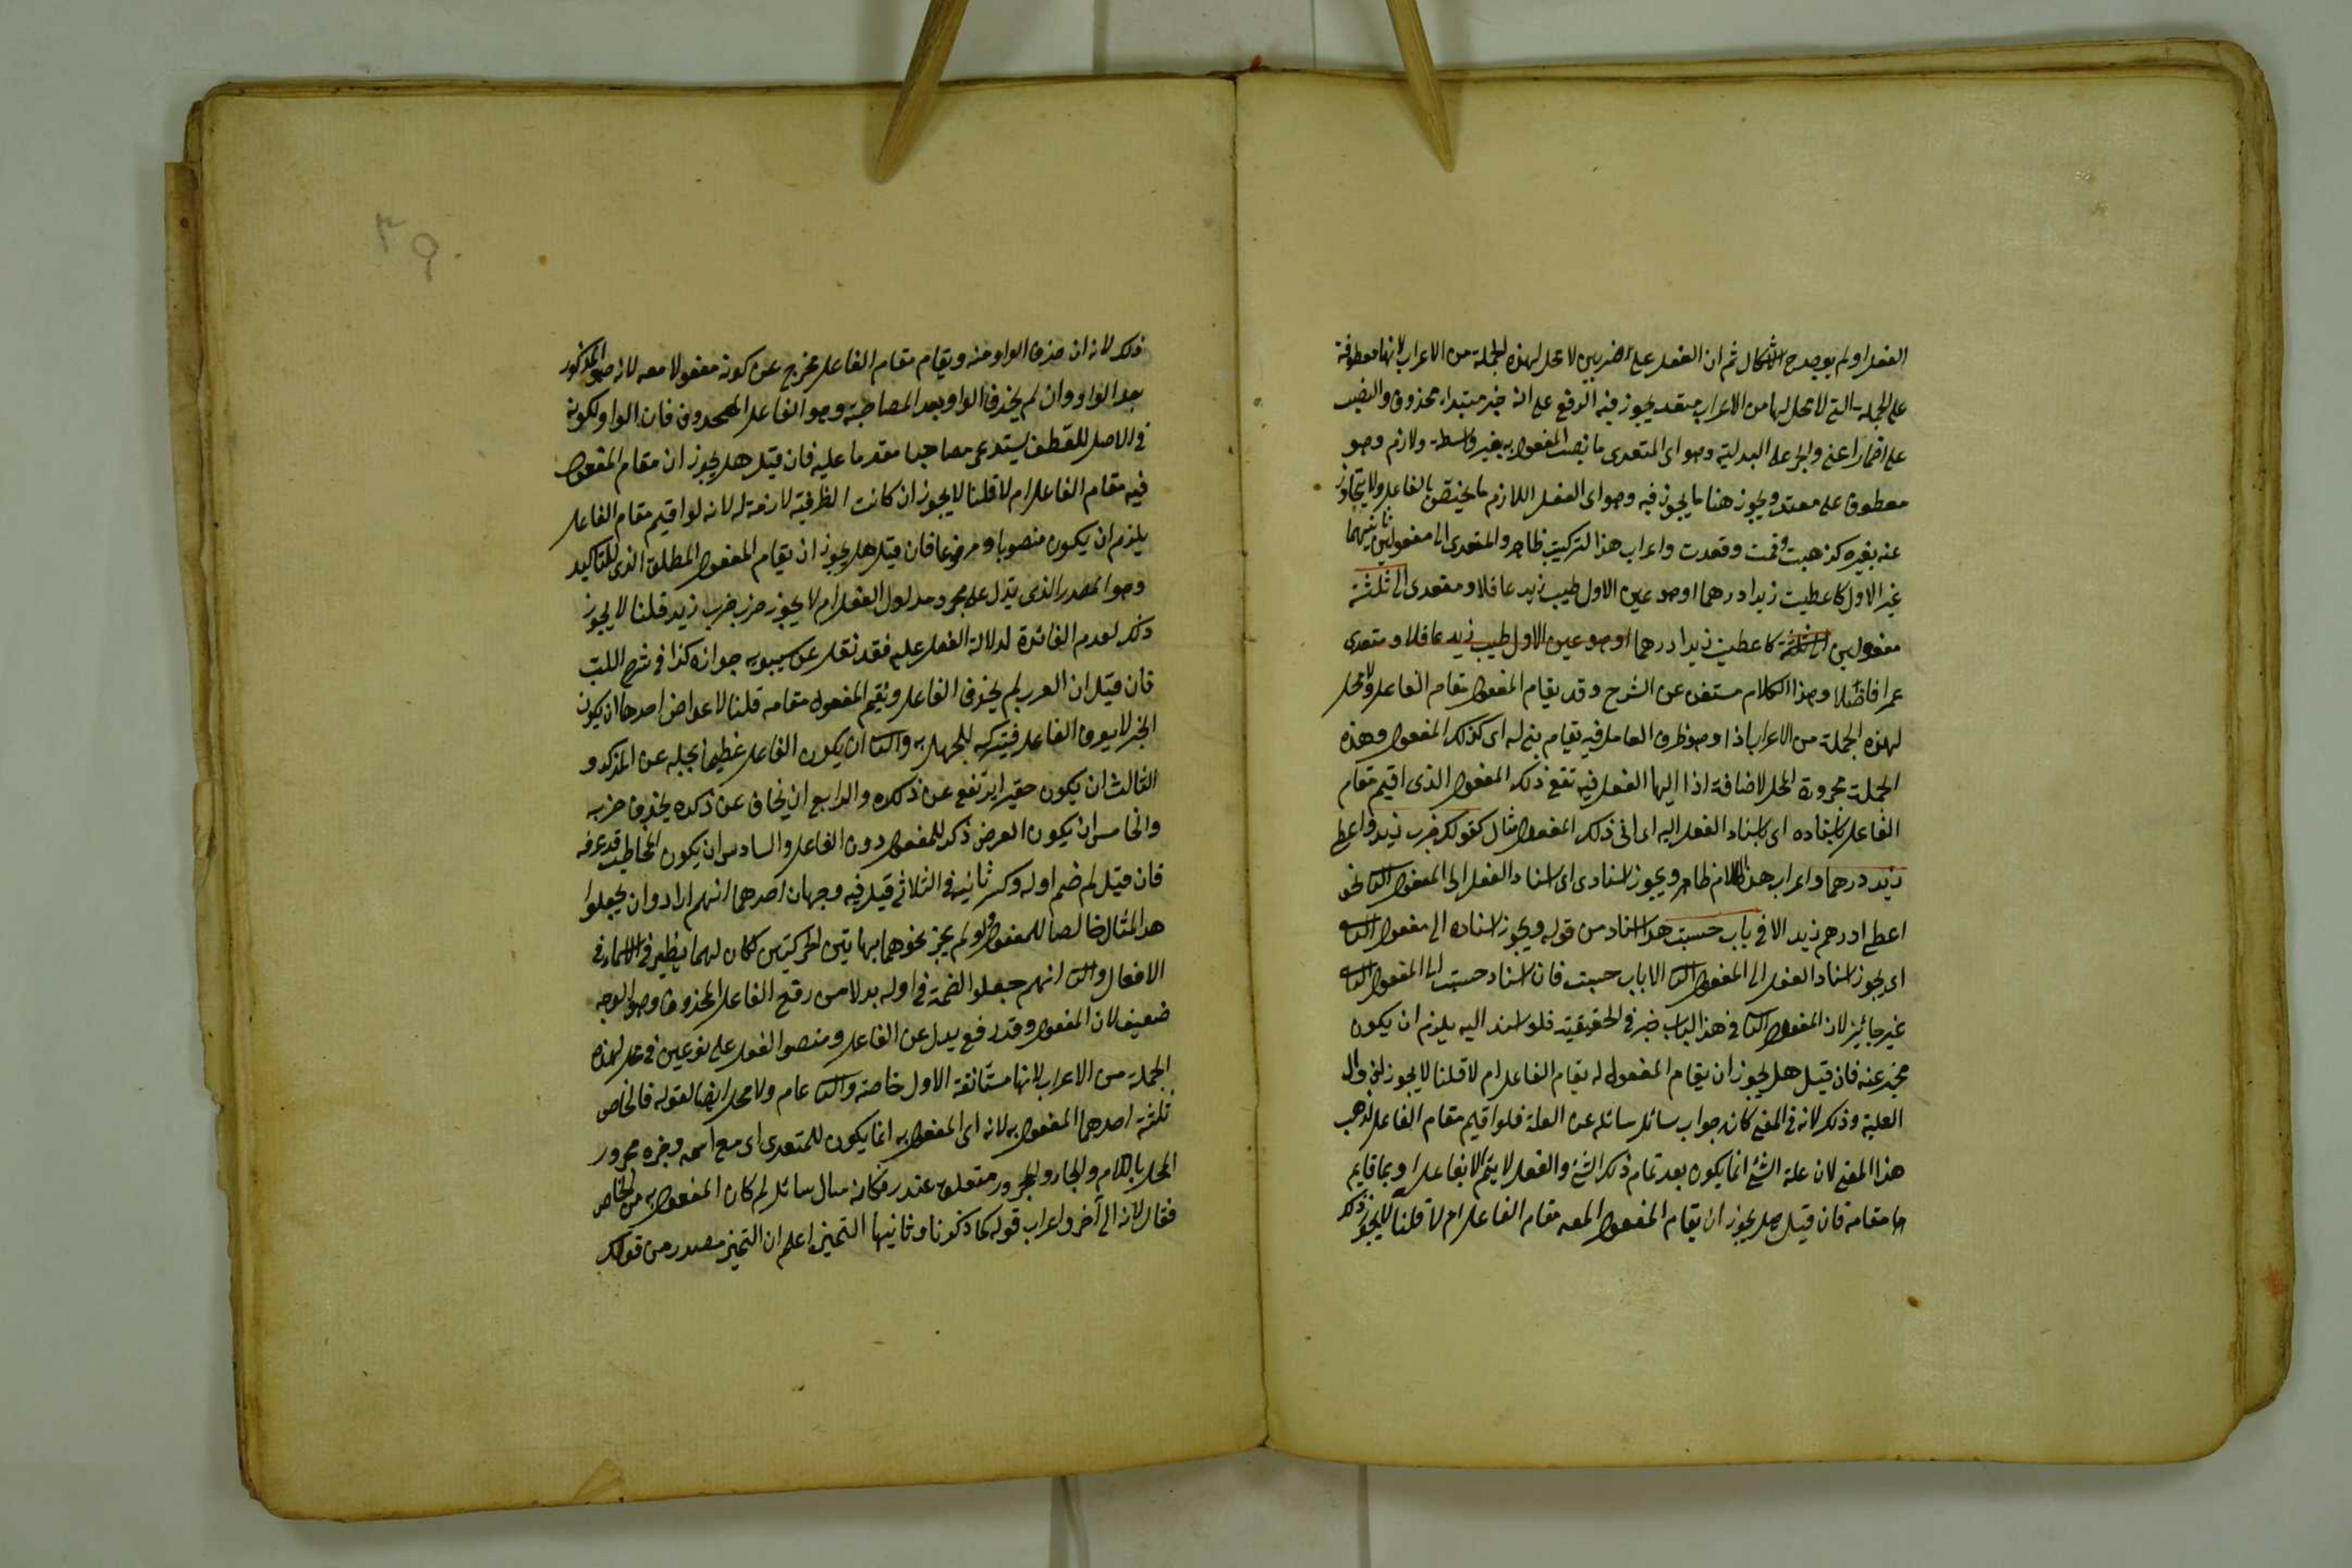 الفعل او لم يوجد ح اشكال ثم ان الفعل على ضربين لا محل لهذه الجملة من الاعراب لانها معطوفة
على الجملة التى لا محل لها من الاعراب متعد يجوز فيه الرفع على انه خبر مبتداء محذوف والنصب
على اضمار اعنى والجر على البدلية وهو اى المتعدى ما نصب المفعول به بغير واسطة ولازم وهو
معطوف على متعد ويجوز هنا ما يجوز فيه وهو اى الفعل اللازم ما يختص بالفاعل ولا يتجاوز
عنه بغيره كذهبت وقمت وقعدت واعراب هذا التركيب ظاهر والمتعدى الى مفعولين ثانيهما
غير الاول كاعطيت زيدا درهما او هو عين الاول طيب زيد عاقلا ومتعدى الى ثلثة
مفعولين الى ثلثة كاعطيت زيدا درهما او هو عين الاول طيب زيد عاقلا ومتعدى
عمرا فاضلا وهذا الكلام مستغن عن الشرح وقد يقام المفعول مقام الفاعل ولا محل
لهذه الجملة من الاعراب اذا وهو ظرف العامل فيه يقام بنى له اى كذلك المفعول وهذه
الجملة مجرورة المحل لاضافة اذا اليها الفعل فيه تقع ذلك المفعول الذى اقيم مقام
الفاعل باسناده اى باسناد الفعل اليه اى الى ذلك المفعول مثال كقولك ضرب زيد واعطى
زيد درهما واعراب هذا الكلام ظاهر ويجوز اسنادى اى اسناد الفعل الى المفعول الثانى نحو
اعطى ادرهم زيد الا فى باب حسبت هذا اسناد من قوله ويجوز اسناده الى مفعول الثانى
اى يجوز اسناد الفعل الى المفعول الثانى الا باب حسبت فان اسناد حسبت الى المفعول الثانى
غير جائز لان المفعول الثانى فى هذا الباب خبر فى الحقيقة فلو اسند اليه يلزم ان يكون
مخبر عنه فان قيل هل يجوز ان يقام المفعول له يقام الفاعل ام لا قلنا لا يجوز لزوال
العلية وذلك لانه فى المعنى كان جواب سائل سائله عن العلة فلو اقيم مقام الفاعل لذهب
هذا المعنى لان علة الشئ انما يكون بعد تمام ذلك الشئ والفعل لا يتم الا بفاعل او بما قايم
ها مقامه فان قيل هل يجوز ان يقام المفعول المعه مقام الفاعل ام لا قلنا لا يجوز ذلك
٣٩
ذلك لانه ان حذف الواو منه ويقام مقام الفاعل يخرج عن كونه مفعولا معه لانه هو المذكور
بعد الواو وان لم يحذف الواو بعد المصاحبة وهو الفاعل المحذوف فان الواو لكونه
فى الاصل للعطف يستدعى مصاحبا مقدما عليه فان قيل هل يجوز ان مقام المفعول
فيه مقام الفاعل ام لا قلنا لا يجوز ان كانت الظرفية لازمة له لانه لو اقيم مقام الفاعل
يلزم ان يكون منصوبا ومرفوعا فان قيل هل يجوز ان يقام المفعول المطلق الذى للتاكيد
وهو المصدر الذى يدل على مجرد مدلول الفعل ام لا يجوز ضرب ضرب زيد قلنا لا يجوز
ذلك لعدم الفائدة لدلالة الفعل عليه فقد نقل عن سيبويه جوازه كذا فى شرح اللب
فان قيل ان العرب لم يحذف الفاعل ويقيم المفعول مقامه قلنا لاعواض احدها ان يكون
الخبر لا يعرف الفاعل فيتركه للجهل به والثانى ان يكون الفاعل عظيما نجله عن المذكر و
الثالث ان يكون حقيرا يرتفع عن ذكره والرابع ان يخاف عن ذكره يحذف حزبه
والخامس ان يكون الغرض ذكر للمفعول دون الفاعل والسادس ان يكون المخاطب قد عرفه
فان قيل لم ضم اوله وكسر ثانيه فى الثلاثى قيل فيه وجهان احدهما انهم ارادوان يجعلوا
هذا المثال خالصا للمفعول ولو لم يجز نحوهما بهاتين الحركتين لكان لهما نظير فى الاسماء فى
الافعال والثانى انهم جعلوا الضمة فى اوله بدلا من رفع الفاعل المحذوف وهو الوجه
ضعيف لان المفعول وقد رفع بدل عن الفاعل ومنصوا الفعل على نوعين فى محل لهذه
الجملة من الاعراب لانها مستأنفة الاول خاصة والثانى عام ولا محل ايضا لقوله فالخاص
ثلثة احدهما المفعول به لانه اى المفعول به انما يكون للمتعدى اى مع اسمه وخبره مجرور
المحل باللام والجار والمجرور متعلق عند رفكانه سال سائل لم كان المفعول به من الخاص
فقال لانه الى آخر واعراب قوله كما ذكرنا وثانيها التميز اعلم ان التميز مصدر من قولك